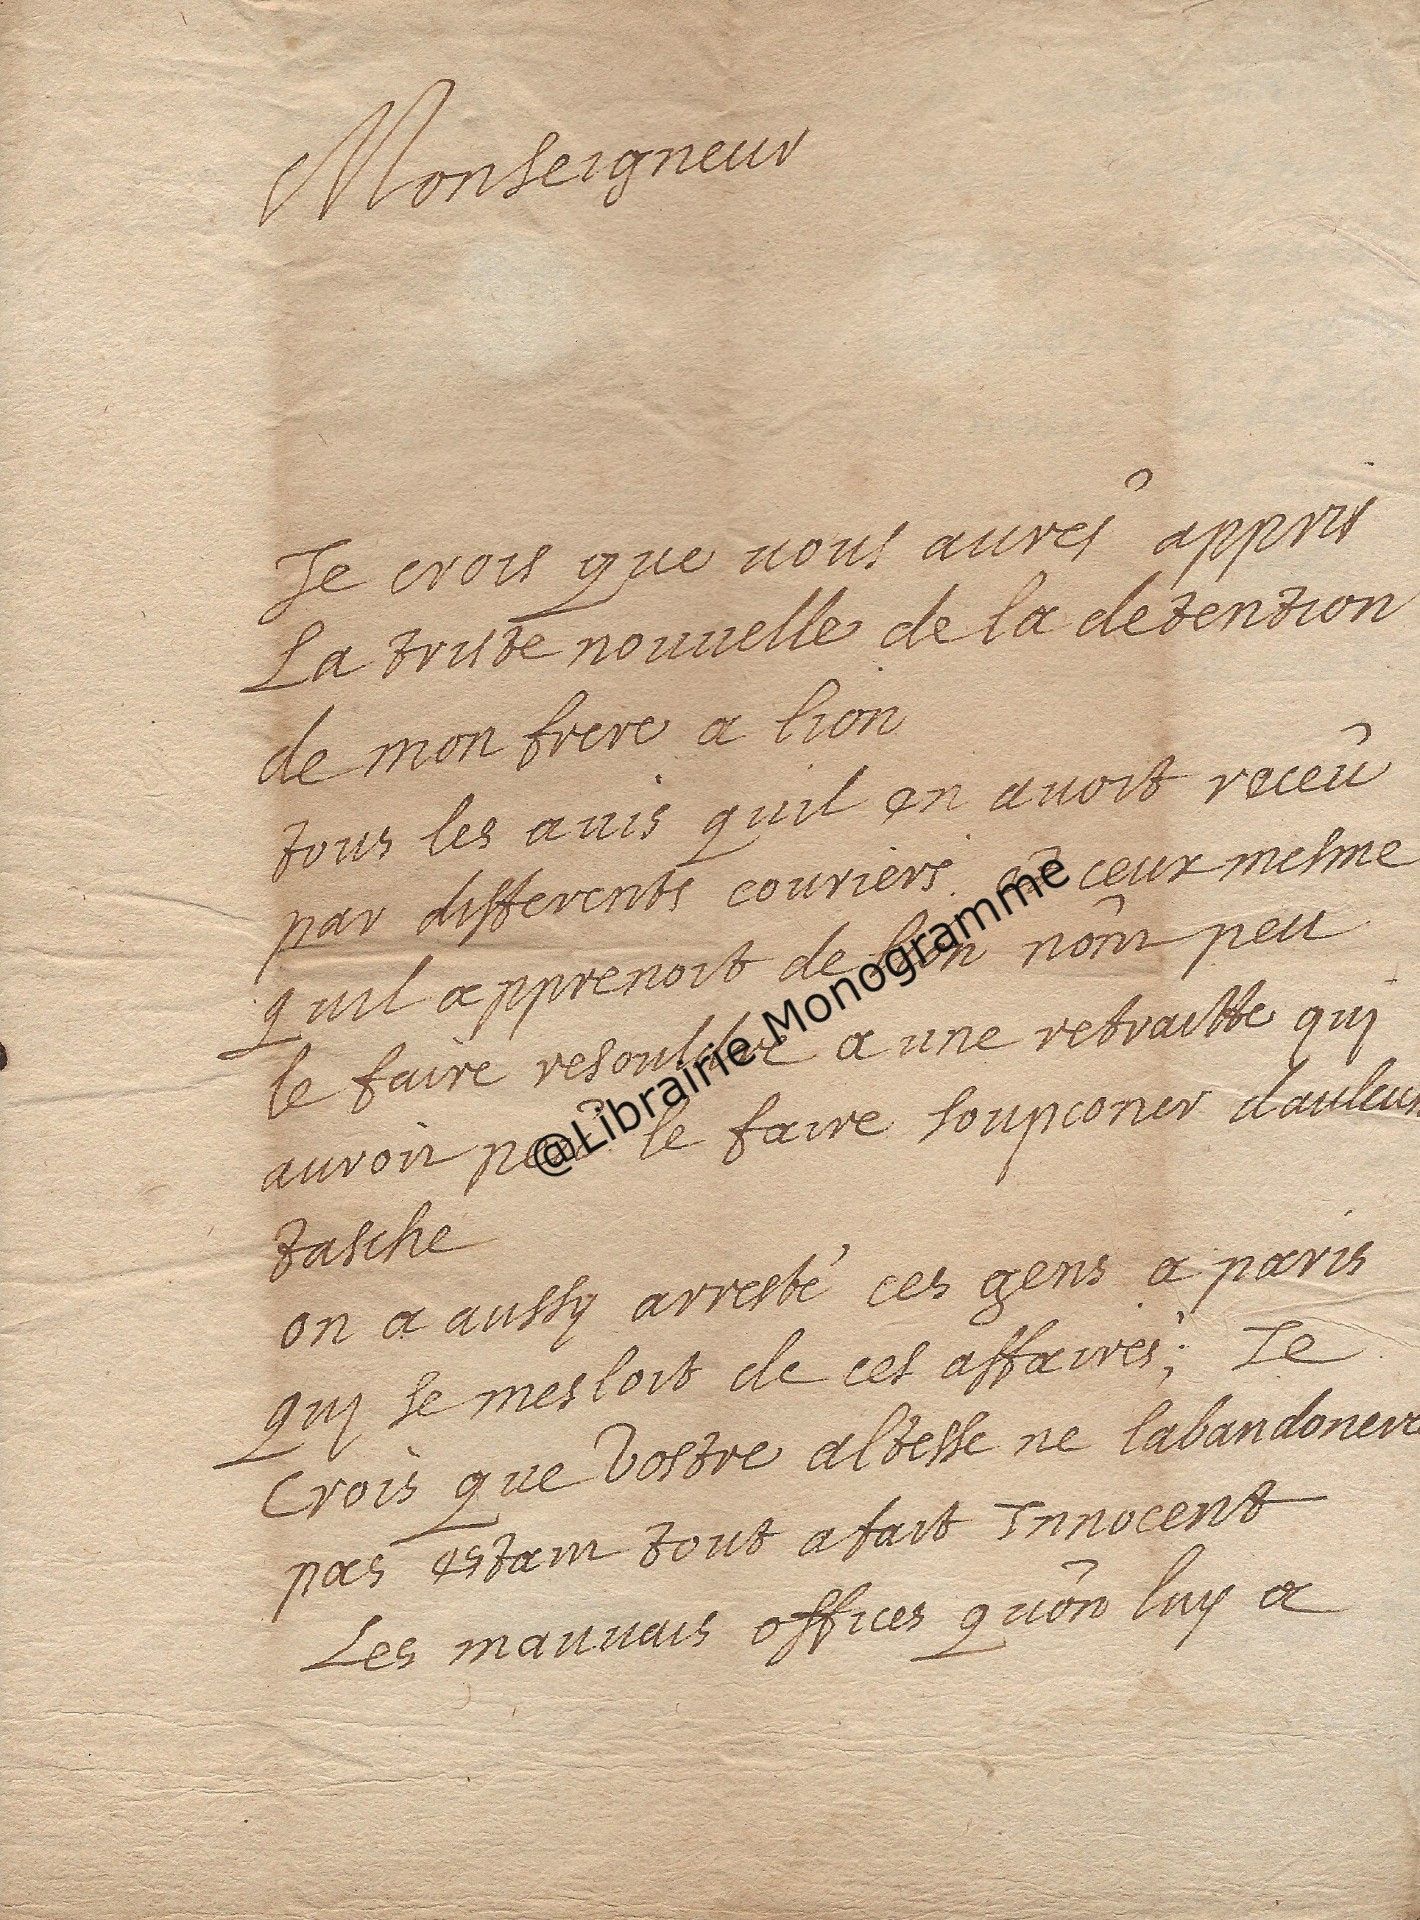 Monseigneur
Je crois que uous aurés appris
La triste nouuelle de la detention
de mon frere a lion
tous les auis quil en auoit receu
par differents couriers ceux mesme
quil apprenoit de lion nônt peu
le faire resouldre a une retraitte quj
auroit peu le faire soupconer daulcune
tasche
on a aussy arresté ces gens a paris
quj se mesloit de ces affaires; Je
Crois que Vostre altesse ne labandonera
pas estant tout a fait Innocent
Les mauuais offices quôn luy a
@Librairie.Monogramme